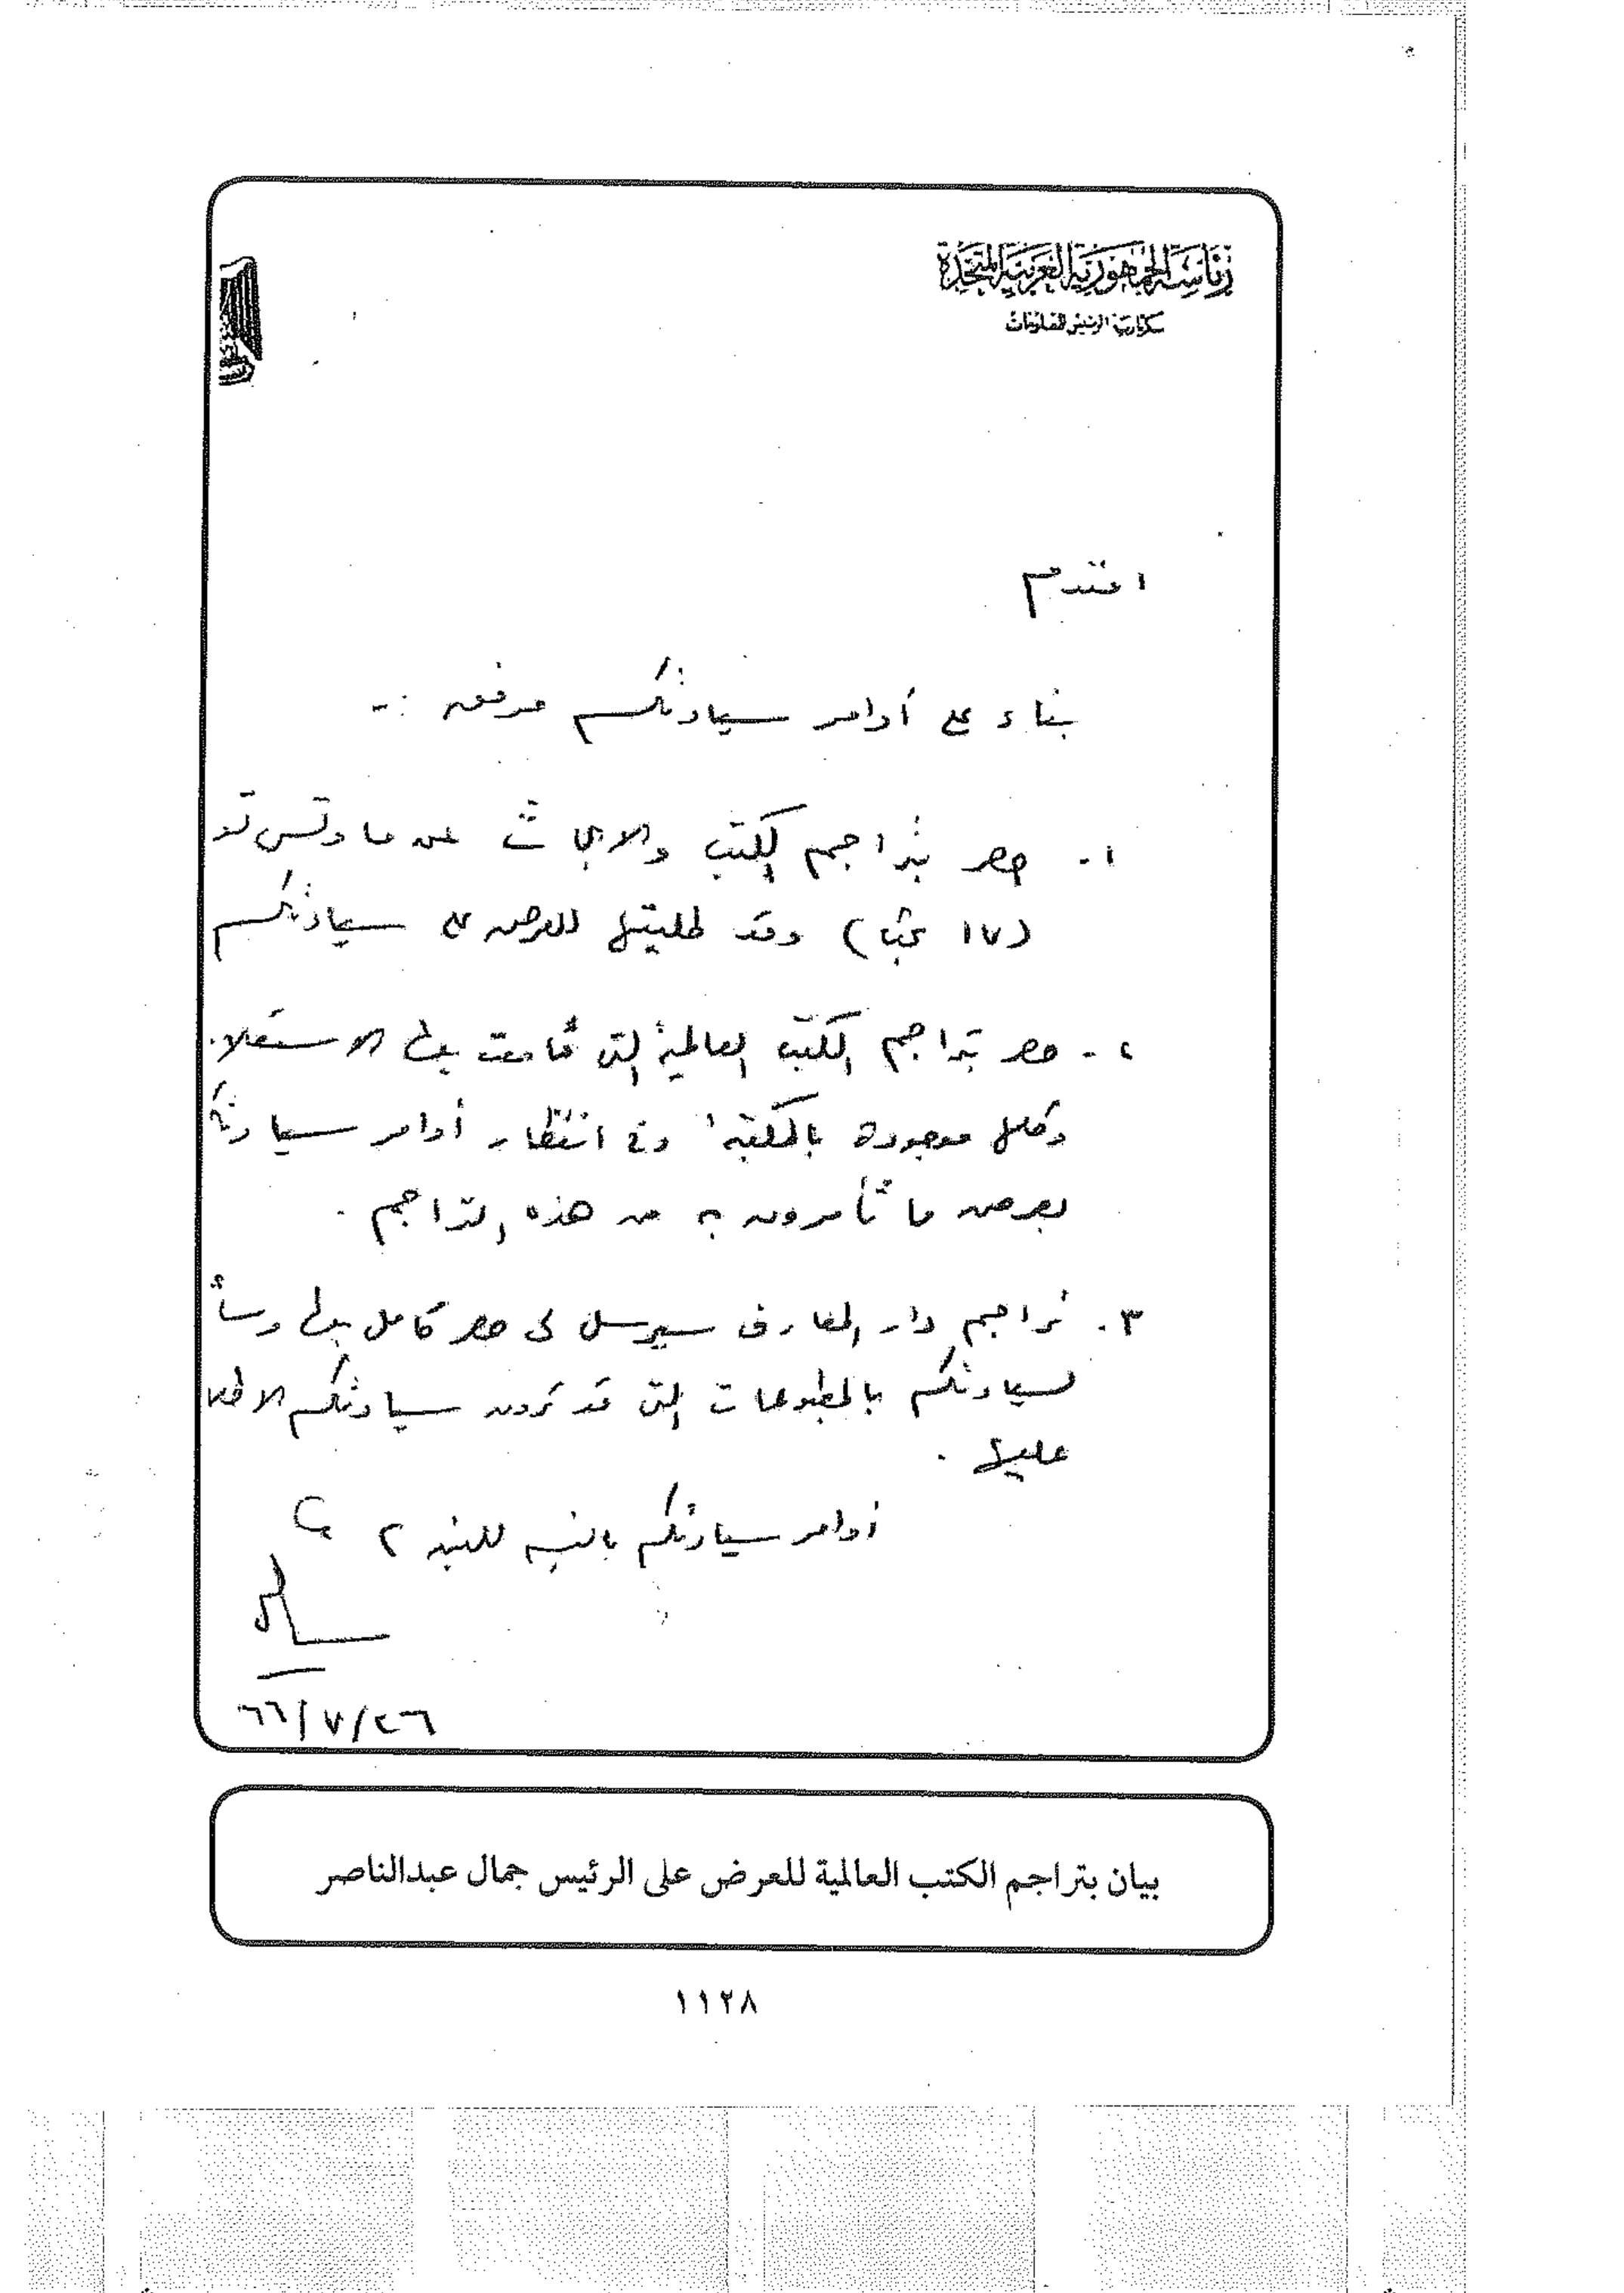 رئاسة الجمهورية العربية المتحدة
سكرتارية الرئيس للمعلومات
افندم
بناء على أوامر سيادتكم مرفق :-
١- حصر بتراجم الكتب والابحاث عن ماوتس تو
(١٧ بحثا) وقد طلبتها للعرض على سيادتكم
٢- حصر بتراجم الكتب العالمية التى قامت بها الاستعلا
وكلها موجودة بالمكتبة وفى انتظار أوامر سيادتك
بعرض ما تأمرون به من هذه التراجم .
٣- تراجم دار المعارف سيرسل لى حصر كامل بها وسأ
لسيادتكم بالمطبوعات التى قد ترون سيادتكم الاطلا
عليها .
أوامر سيادتكم بالنسبه للبند ٢ ؟
٦٦/٧/٢٦
بيان بتراجم الكتب العالمية للعرض على الرئيس جمال عبدالناصر
١١٢٨